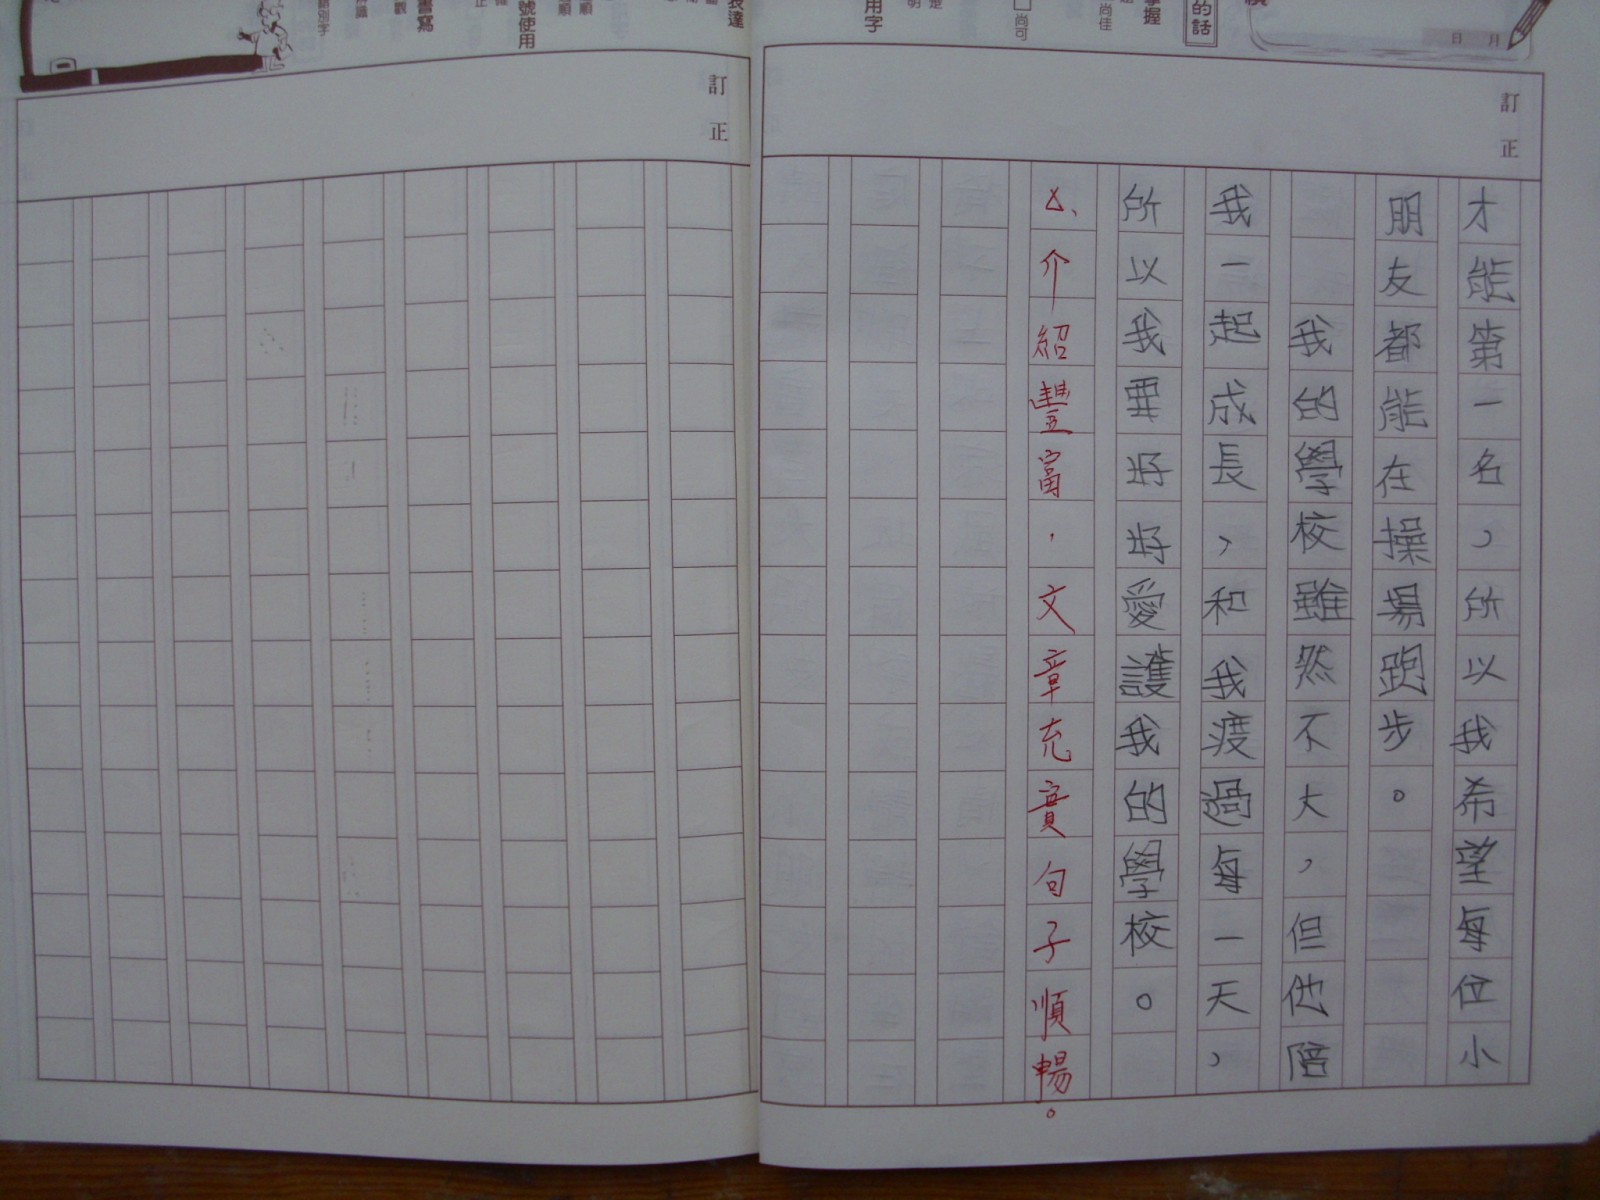 才能第一名，所以我希望每位小
朋友都能在操場跑步。
我的學校雖然不大，但他陪
我一起成長，和我渡過每一天，
所以我要好好愛護我的學校。
介紹豐富，文章充實句子順暢。
訂正
訂正
月 日
的話
掌握
尚佳
尚可
用字
表達
號使用
書寫